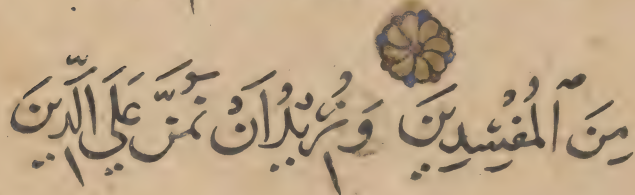 مِنَ ٱلْمُفْسِدِينَ وَنُرِيْدُ اَنْ نَمُنَّ عَلَي الَّذِينَ